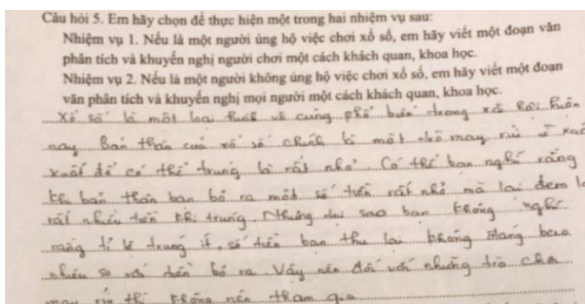 Câu hỏi 5. Em hãy chọn để thực hiện một trong hai nhiệm vụ sau:
Nhiệm vụ 1. Nếu là một người ủng hộ việc chơi xổ số, em hãy viết một đoạn văn
phân tích và khuyến nghị người chơi một cách khách quan, khoa học.
Nhiệm vụ 2. Nếu là một người không ủng hộ việc chơi xổ số, em hãy viết một đoạn
văn phân tích và khuyến nghị mọi người một cách khách quan, khoa học.
Xổ số là một loại hình vô cùng phổ biến trong xã hội hiện
nay. Bản thân của xổ số chính là một may rủi vì xuất
để có thể trúng là rất nhỏ. Có thể bạn nghĩ rằng
khi bản thân bạn bỏ ra một số tiền rất nhỏ mà lại đem
rất nhiều tiền khi trúng. Nhưng tại sao bạn không nghĩ
rằng tỉ lệ trúng ít, số tiền bạn thu lại không đáng bao
nhiêu so với tiền bỏ ra. Vậy nên đối với những trò chơi
may rủi thì không nên tham gia